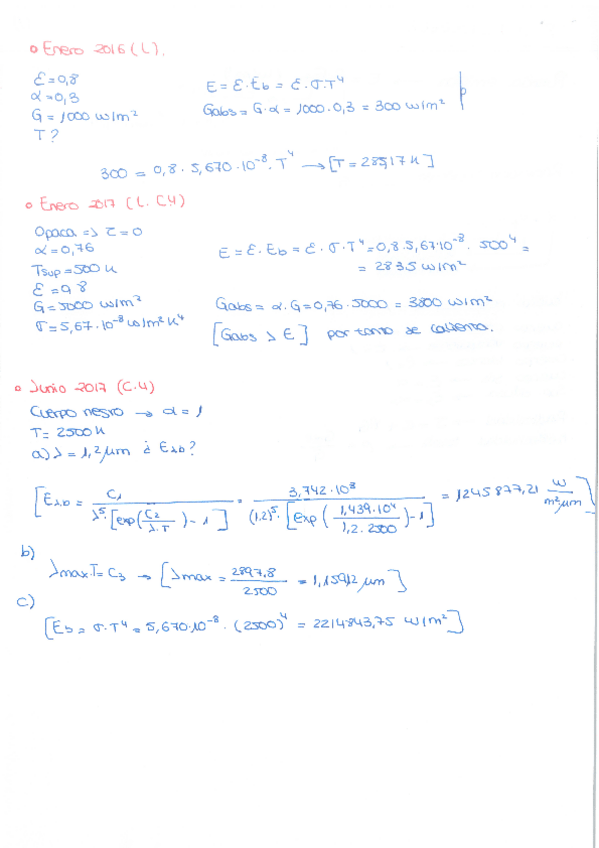 o Enero 2016 (L).
ε=0,8
α=0,3
G=1000 w/m²
T?
E = ε·Eb = ε·σ·T⁴
Gabs = G·α = 1000·0,3 = 300 w/m²
300 = 0,8·5,670·10⁻⁸·T⁴ → [T = 285,17 K]
o Enero 2017 (L. C4)
Opaca => τ=0
α=0,76
Tsup=500 K
ε=0,8
G=5000 w/m²
σ=5,67·10⁻⁸ w/m² K⁴
E = ε·Eb = ε·σ·T⁴ = 0,8·5,67·10⁻⁸·500⁴ =
= 2835 w/m²
Gabs = α·G = 0,76·5000 = 3800 w/m²
[Gabs > E] por tanto se calienta.
o Junio 2017 (C.4)
Cuerpo negro → α=1
T= 2500 K
a) λ=1,2 μm ¿ Eλb?
[Eλb = C₁ / λ⁵·[exp(C₂/λ·T)-1] = 3,742·10⁸ / (1,2)⁵·[exp(1,439·10⁴/1,2·2500)-1] = 1245877,21 w/m²μm]
b)
λmax·T=C₃ → [λmax = 2897,8/2500 = 1,15912 μm]
c)
[Eb = σ·T⁴ = 5,670·10⁻⁸·(2500)⁴ = 2214843,75 w/m²]